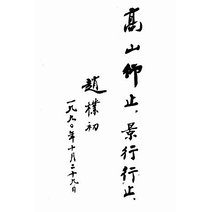 高山仰止，景行行止。
趙樸初
一九九〇年十月二十九日